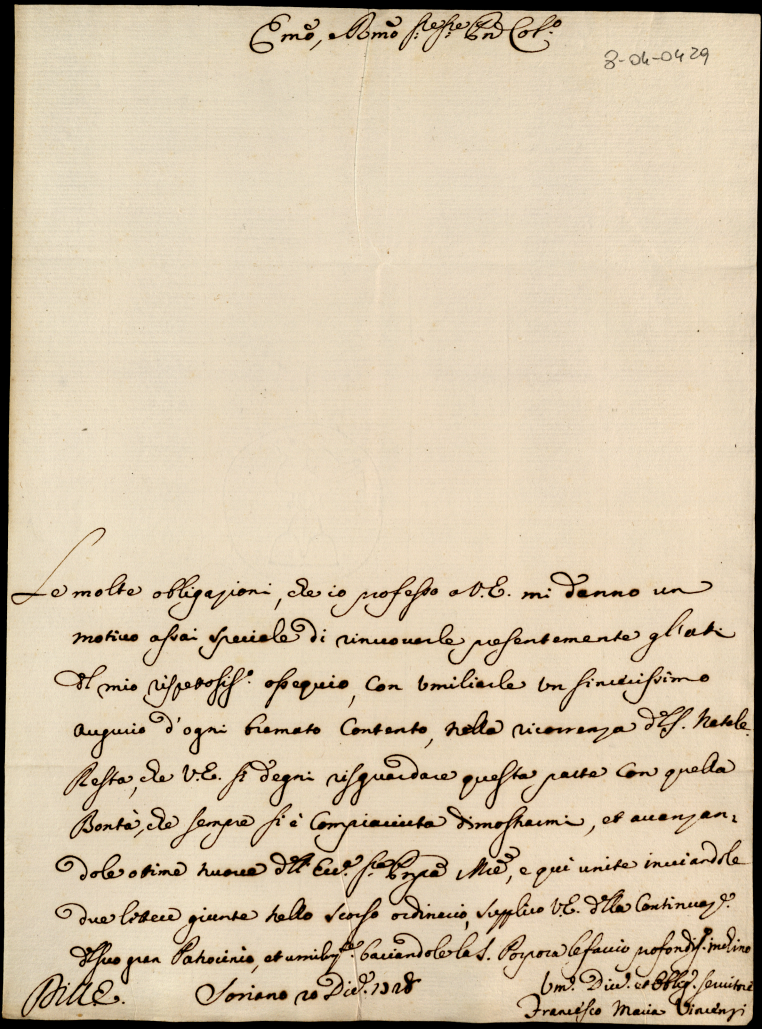 Emo, e Rmo Sre Sre Pne Col.o
3-04-0429
Le molte obligazioni, che io professo a V.E. mi danno un
motivo assai speciale di rinovarle presentemente gl'atti
del mio rispetosiss.o ossequio, con umiliarle un sincerissimo
augurio d'ogni bramato contento, nella ricorrenza del S. Natale.
Resta, che V.E. si degni risguardare questa parte con quella
Bontà, che sempre si è compiaciuta dimostrarmi, et avanzan-
dole otime nuove dell' Ecc.a Sra Pnpssa Mia, e qui unite inviandole
due lettere giunte nello scorso ordinario, supplico V.E. della continuaz.e
del suo gran Patrocinio, et umilm.te baciandole la S. Porpora le faccio profondiss.o inchino
Di V.E. Soriano 20 Dic.e 1728
Um.o Div.o et Oblig.o Servitore
Francesco Maria Vincenzi